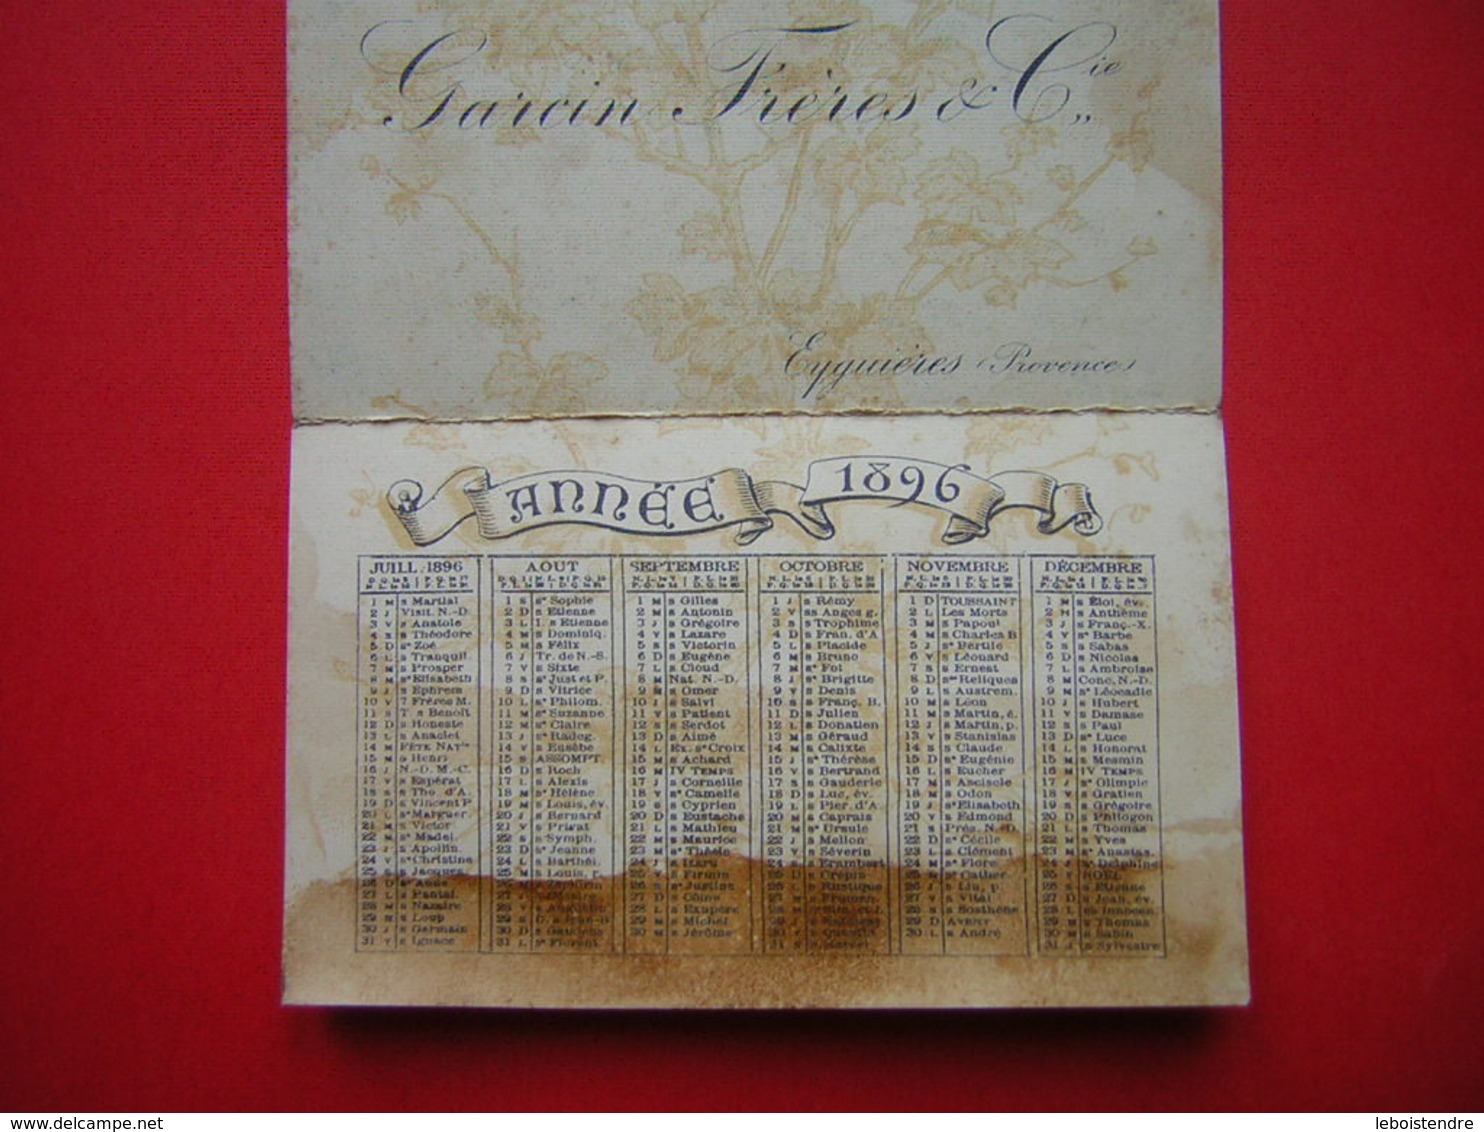 Garcin Frères & Cie
Eyguières (Provence)
ANNÉE 1896
JUILL. 1896
1 M s Martial
2 J Visit. N.-D.
3 V s Anatole
4 S s Théodore
5 D se Zoé
6 L s Tranquil.
7 M s Prosper
8 M se Elisabeth
9 J s Ephrem
10 V 7 Frères M.
11 S T. s Benoît
12 D s Honeste
13 L s Anaclet
14 M FÊTE NATle
15 M s Henri
16 J N.-D. M.-C.
17 V s Espérat
18 S s Tho. d'A.
19 D s Vincent P
20 L se Marguer.
21 M s Victor
22 M se Madel.
23 J s Apollin.
24 V se Christine
25 S s Jacques
26 D se Anne
27 L s Pantal.
28 M s Nazaire
29 M s Loup
30 J s Germain
31 V s Ignace
AOUT
1 S se Sophie
2 D s Etienne
3 L I. s Etienne
4 M s Dominiq.
5 M s Félix
6 J Tr. de N.-S.
7 V s Sixte
8 S s Just et P.
9 D s Vitrice
10 L s Philom.
11 M se Suzanne
12 M se Claire
13 J se Radeg.
14 V s Eusèbe
15 S ASSOMPT.
16 D s Roch
17 L s Alexis
18 M se Hélène
19 M s Louis, év.
20 J s Bernard
21 V s Privat
22 S s Symph.
23 D s Jeanne
24 L s Barthél.
25 M s Louis, r.
26 M s Zéphirin
27 J
28 V s Augustin
29 S D. s Jean-B
30 D s
31 L se Florent.
SEPTEMBRE
1 M s Gilles
2 M s Antonin
3 J s Grégoire
4 V s Lazare
5 S s Victorin
6 D s Eugène
7 L s Cloud
8 M Nat. N.-D.
9 M s Omer
10 J s Salvi
11 V s Patient
12 S s Serdot
13 D s Aimé
14 L Ex. se Croix
15 M s Achard
16 M IV TEMPS
17 J s Corneille
18 V se Camelle
19 S s Cyprien
20 D s Eustache
21 L s Mathieu
22 M s Maurice
23 M se Thècle
24 J s
25 V s Firmin
26 S se Justine
27 D s Côme
28 L s Exupère
29 M s Michel
30 M s Jérôme
OCTOBRE
1 J s Rémy
2 V ss Anges g.
3 S s Trophime
4 D s Fran. d'A
5 L s Placide
6 M s Bruno
7 M se Foi
8 J se Brigitte
9 V s Denis
10 S s Franç. B.
11 D s Julien
12 L s Donatien
13 M s Géraud
14 M s Calixte
15 J se Thérèse
16 V s Bertrand
17 S s Gauderie
18 D s Luc, év.
19 L s Pier. d'A
20 M s Caprais
21 M se Ursule
22 J s Mellon
23 V s Séverin
24 S s Erambert
25 D s Crépin
26 L s Rustique
27 M s Frumen.
28 M s Sim. et J.
29 J s Narcisse
30 V s Quentin
31 S s
NOVEMBRE
1 D TOUSSAINT
2 L Les Morts
3 M s Papoul
4 M s Charles B
5 J se Bertile
6 V s Léonard
7 S s Ernest
8 D ses Reliques
9 L s Austrem.
10 M s Léon
11 M s Martin, é.
12 J s Martin, p.
13 V s Stanislas
14 S s Claude
15 D s Eugénie
16 L s Eucher
17 M s Asciscle
18 M s Odon
19 J se Elisabeth
20 V s Edmond
21 S Prés. N.-D.
22 D se Cécile
23 L s Clément
24 M se Flore
25 M se Cather.
26 J s Lin, p.
27 V s Vital
28 S s Sosthène
29 D AVENT
30 L s André
DÉCEMBRE
1 M s Éloi, év.
2 M s Anthème
3 J s Franç.-X.
4 V se Barbe
5 S s Sabas
6 D s Nicolas
7 L s Ambroise
8 M Conc. N.-D.
9 M se Léocadie
10 J s Hubert
11 V s Damase
12 S s Paul
13 D se Luce
14 L s Honorat
15 M s Mesmin
16 M IV TEMPS
17 J se Olimpie
18 V s Gratien
19 S s Grégoire
20 D s Philogon
21 L s Thomas
22 M s Yves
23 M se Anastas.
24 J se Delphine
25 V NOEL
26 S s Etienne
27 D s Jean, év.
28 L ss Innocen
29 M s Thomas
30 M s Sabin
31 J s Sylvestre
leboistendre
www.delcampe.net